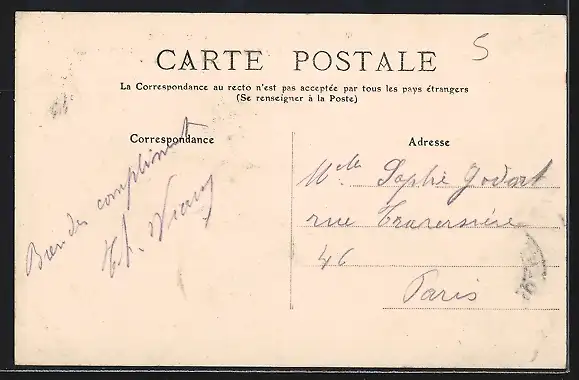 5
CARTE POSTALE
La Correspondance au recto n'est pas acceptée par tous les pays étrangers
(Se renseigner à la Poste)
Correspondance
Bien des compliments
Th.
Adresse
Melle Sophie Godart
rue Traversière
46
Paris